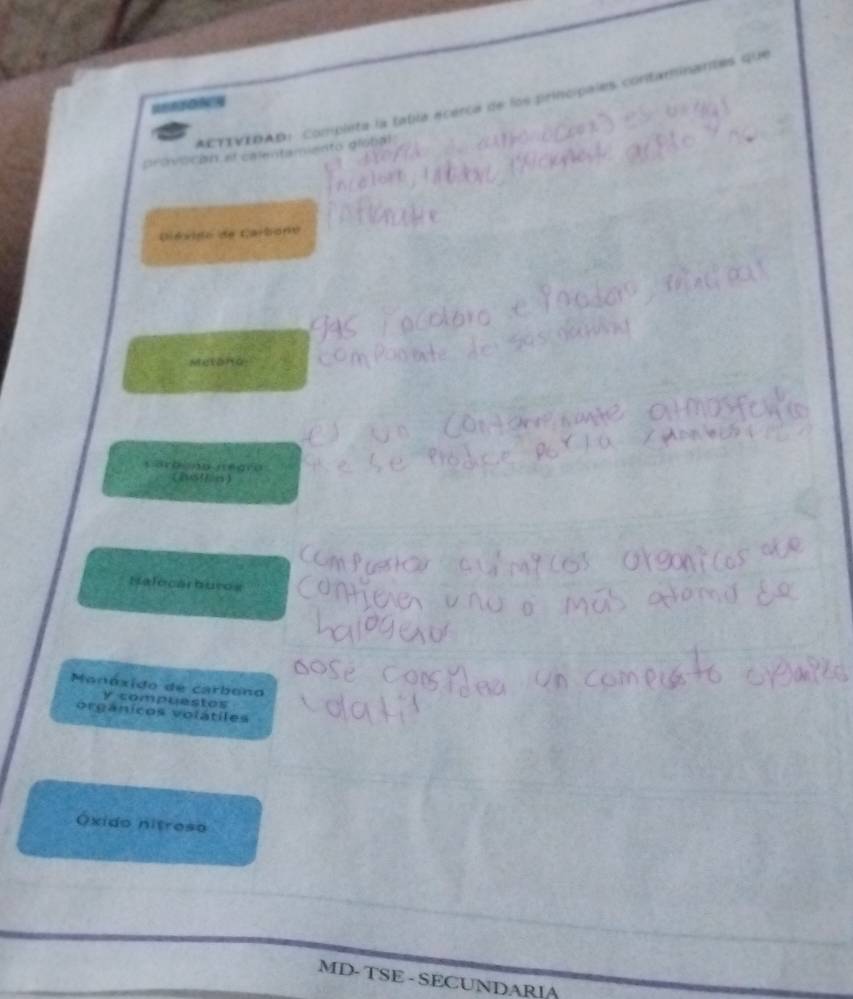 ACTIVIDAD: Completa la tabla acerca de los principales contaminantes que
provocan el calentamiento global:
Dióxido de Carbono
Metano
gas incoloro e inodoro, principal
componente de gas natural
Carbono negro
(hollín)
es un contaminante atmosferico
que se produce por la
Halocarburos
compuestos quimicos organicos que
contienen uno o más atomo de
halogeno
Monóxido de carbono
y compuestos
orgánicos volátiles
nose considera un compuesto organico
volatil
Óxido nitroso
MD- TSE - SECUNDARIA